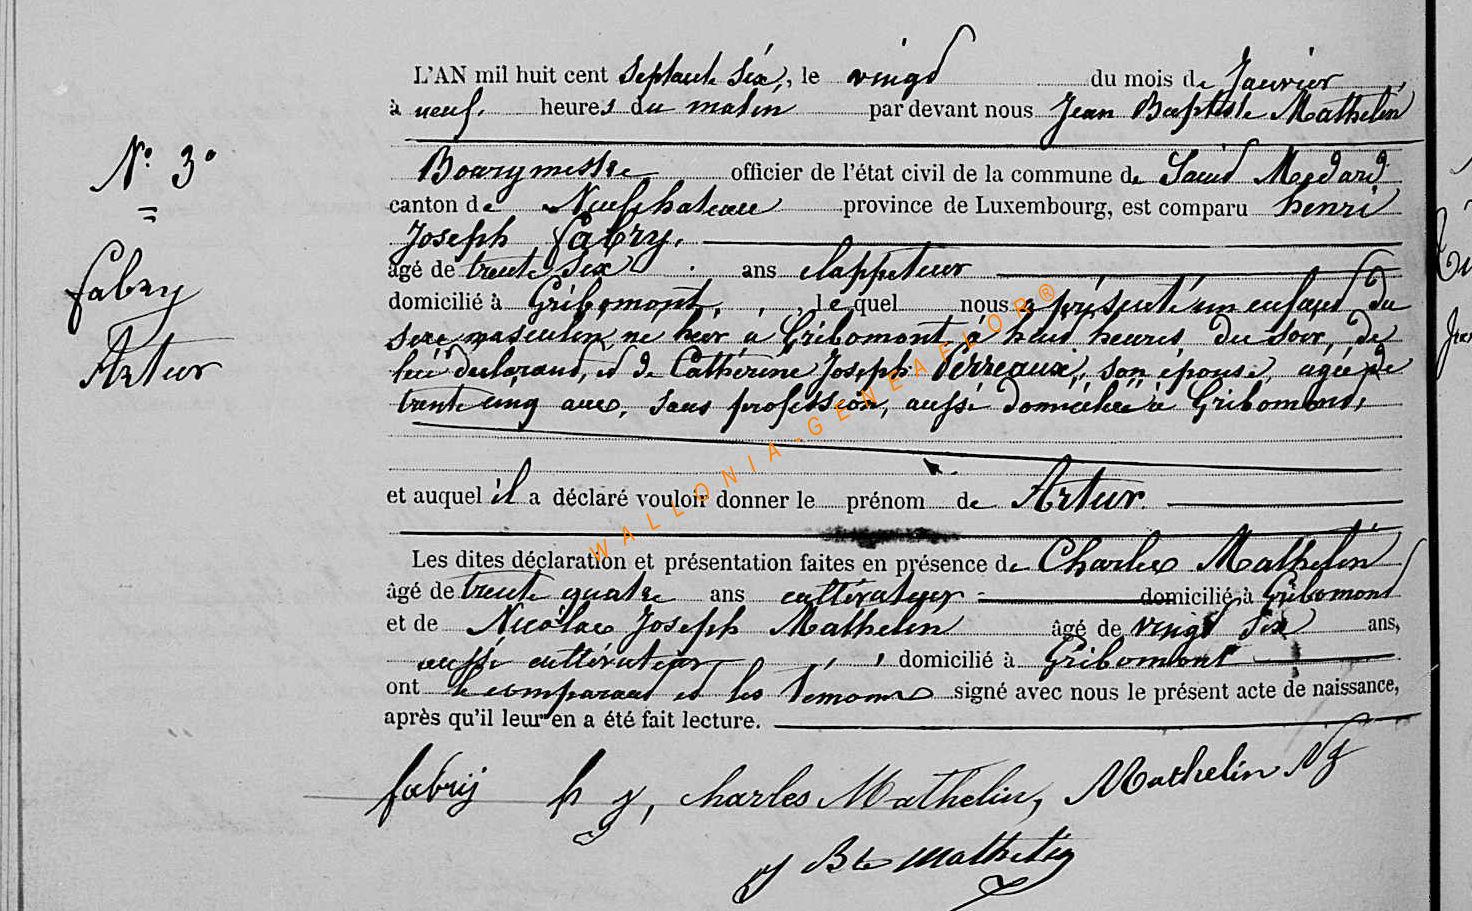 L'AN mil huit cent septante six, le vingt du mois de Janvier
à neuf heures du matin par devant nous Jean Baptiste Mathelin
Bourgmestre officier de l'état civil de la commune de Saint Medard
canton de Neufchateau province de Luxembourg, est comparu henri
Joseph fabry.
âgé de trente six ans clappeteur
domicilié à Gribomont, lequel nous a présenté un enfant du
sexe masculin né hier à Gribomont à huit heures du soir, de
lui déclarant, et de Cathérine Joseph Perreaux, son épouse, agée de
trente cinq ans, sans profession, aussi domiciliée à Gribomont,
et auquel il a déclaré vouloir donner le prénom de Artur.
Les dites déclaration et présentation faites en présence de Charles Mathelin
âgé de trente quatre ans cultivateur domicilié à Gribomont
et de Nicolas Joseph Mathelin âgé de vingt six ans,
aussi cultivateur, domicilié à Gribomont
ont le comparant et les témoins signé avec nous le présent acte de naissance,
après qu'il leur en a été fait lecture.
fabrÿ h j, charles Mathelin, Mathelin N J
J Bte Mathelin
N° 3°
fabry
Artur
WALLONIA-GENEAFLOR®